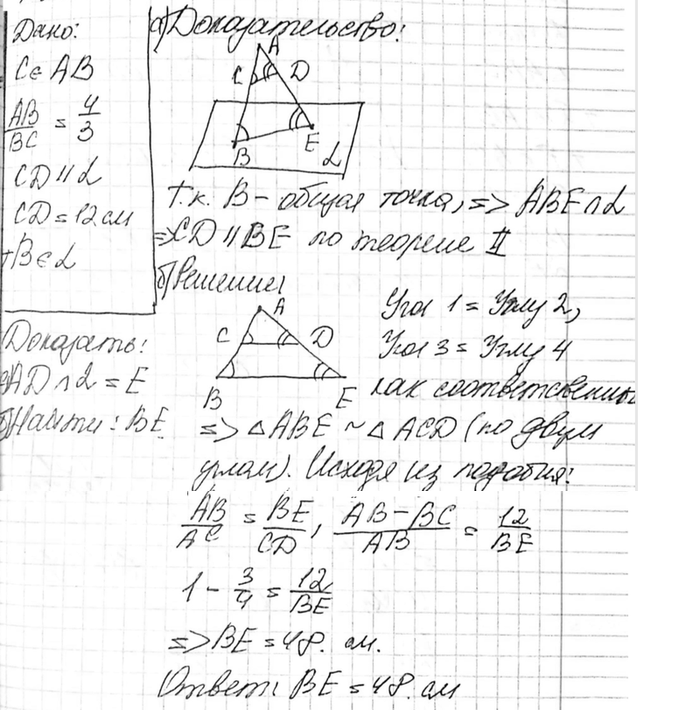 Дано:
C ∈ AB
AB/BC = 4/3
CD || α
CD = 12 см
B ∈ α
Доказать:
AD ∩ α = E
б) Найти: BE
а) Доказательство:
A
C D
B E α
Т.к. B – общая точка, => ABE ∩ α
=> CD || BE по теореме II
б) Решение:
A
C D
B E
Угол 1 = Углу 2,
Угол 3 = Углу 4
как соответственн
=> △ABE ~ △ACD (по двум
углам). Исходя из подобия:
AB/AC = BE/CD, AB – BC/AB = 12/BE
1 – 3/4 = 12/BE
=> BE = 48. см.
Ответ: BE = 48. см